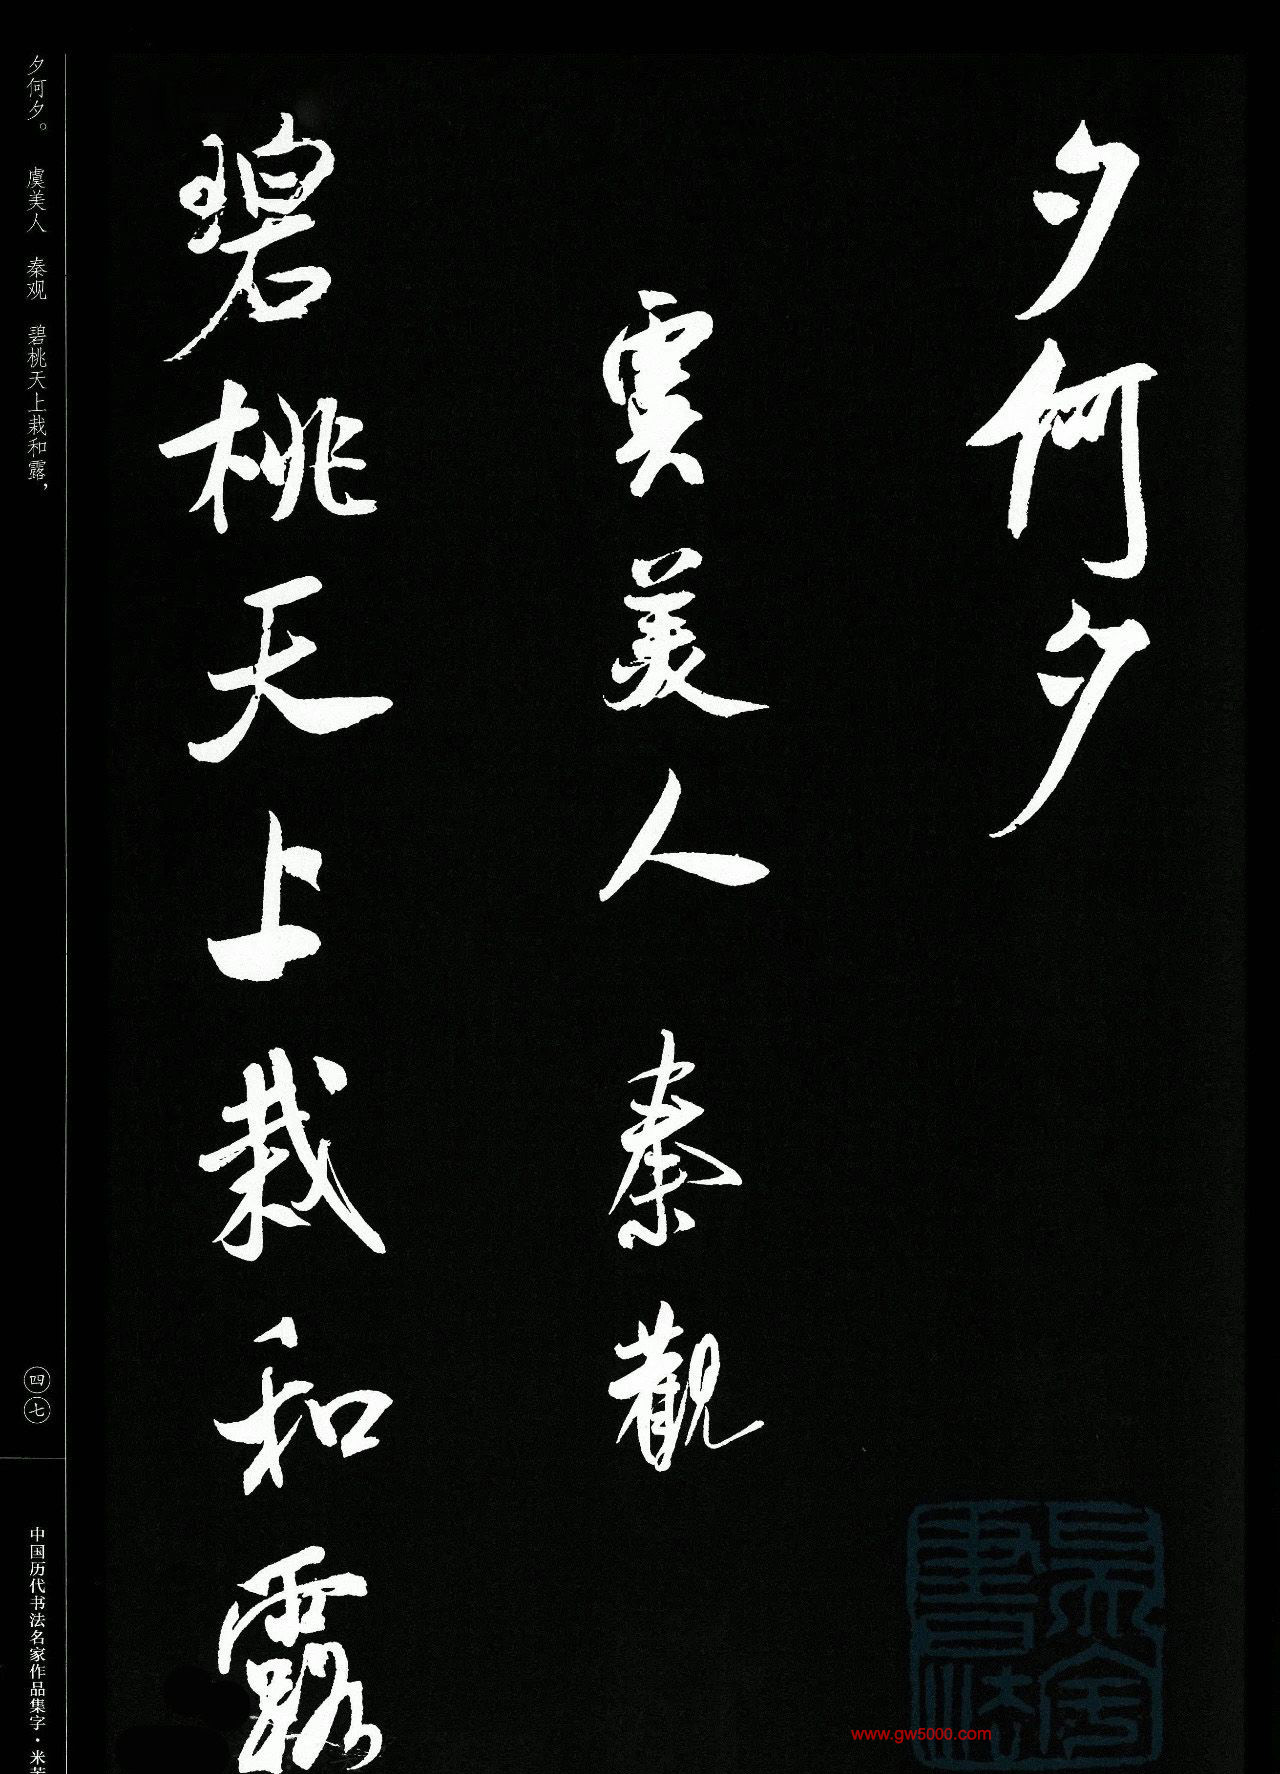 夕何夕
虞美人 秦觀
碧桃天上栽和露
夕何夕。 虞美人 秦观 碧桃天上栽和露，
四七
中国历代书法名家作品集字·米芾
www.gw5000.com